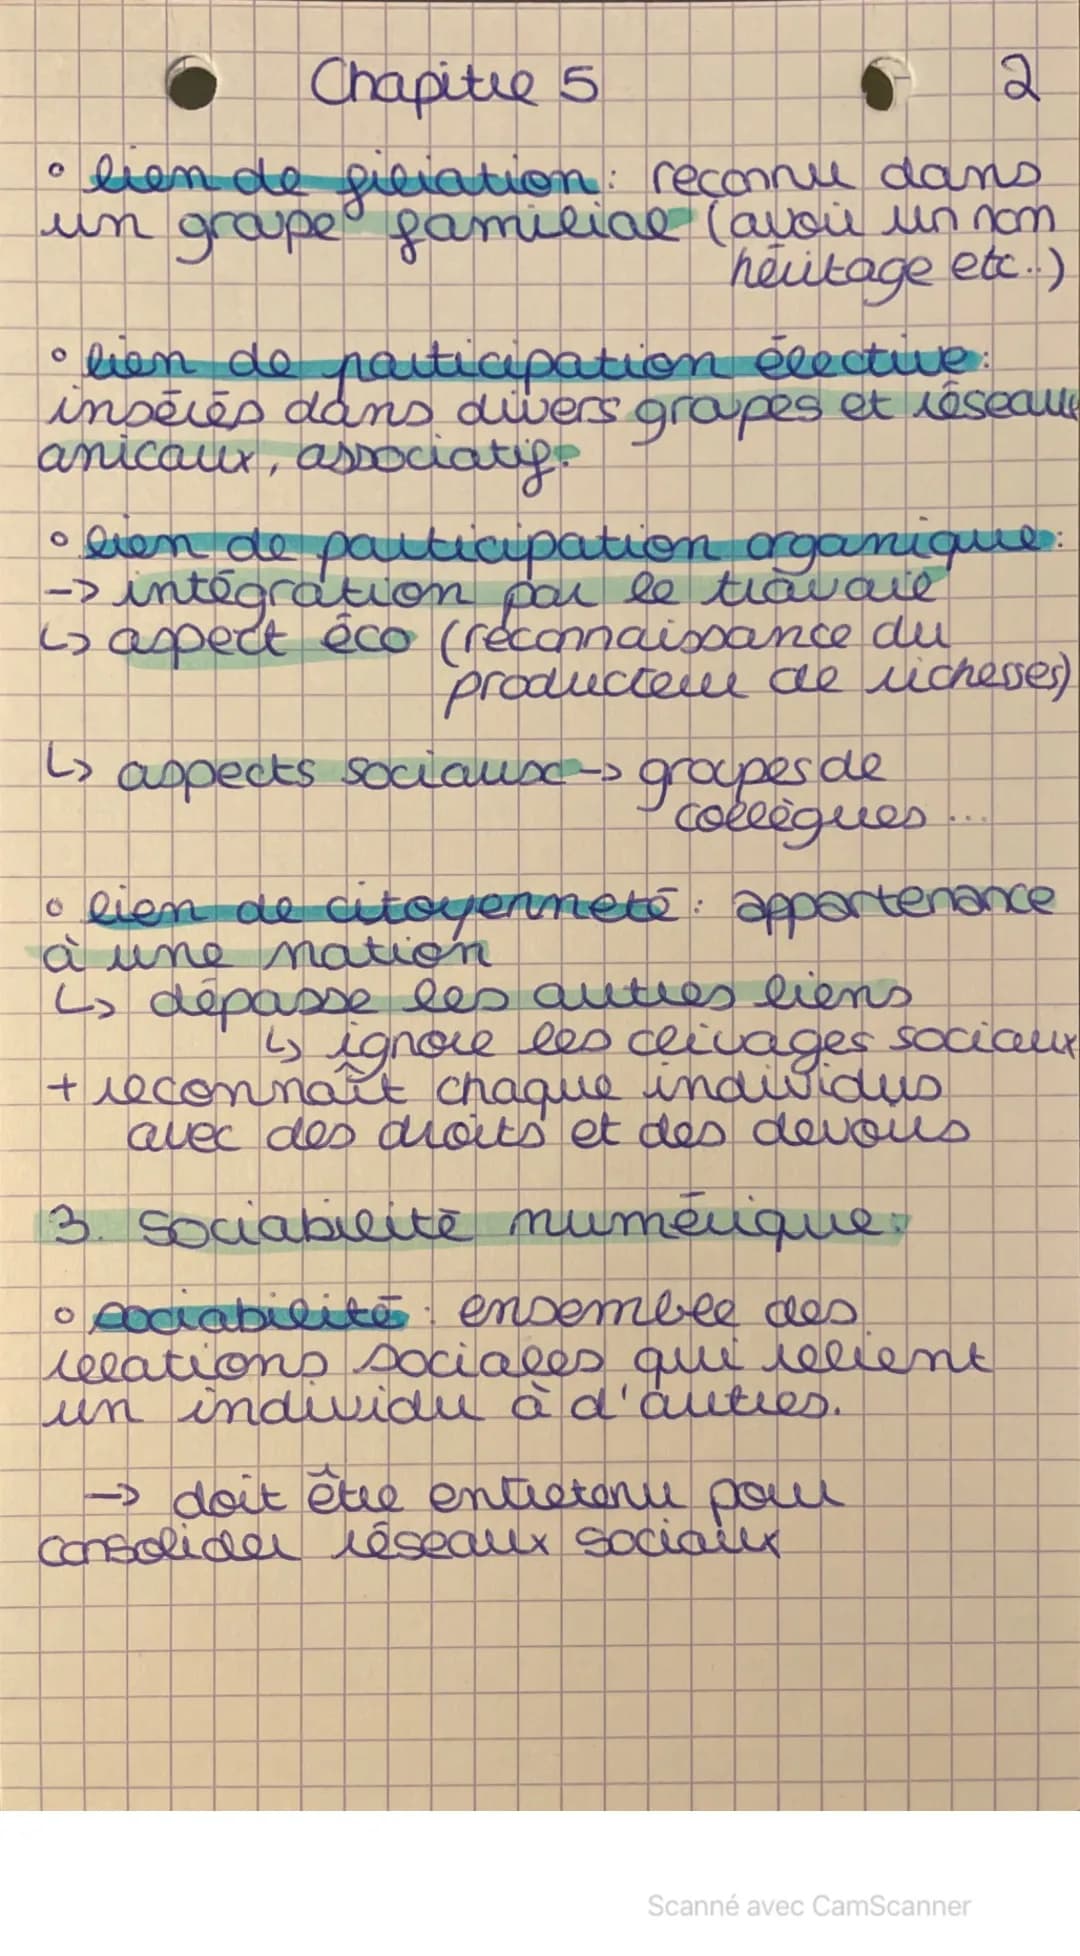 Chapitre 5 2
• lien de filiation : reconnu dans
un groupe familial (avoir un nom
héritage etc..)
• lien de participation élective :
insérés dans divers groupes et réseaux
amicaux, associatif.
• lien de participation organique :
-> intégration par le travail
↳ aspect éco (reconnaissance du
producteur de richesses)
↳ aspects sociaux -> groupes de
collègues ...
• lien de citoyenneté : appartenance
à une nation
↳ dépasse les autres liens
↳ ignore les clivages sociaux
+ reconnaît chaque individus
avec des droits et des devoirs
3. Sociabilité numérique :
• sociabilité : ensemble des
relations sociales qui relient
un individu à d'autres.
-> doit être entretenu pour
consolider réseaux sociaux
Scanné avec CamScanner